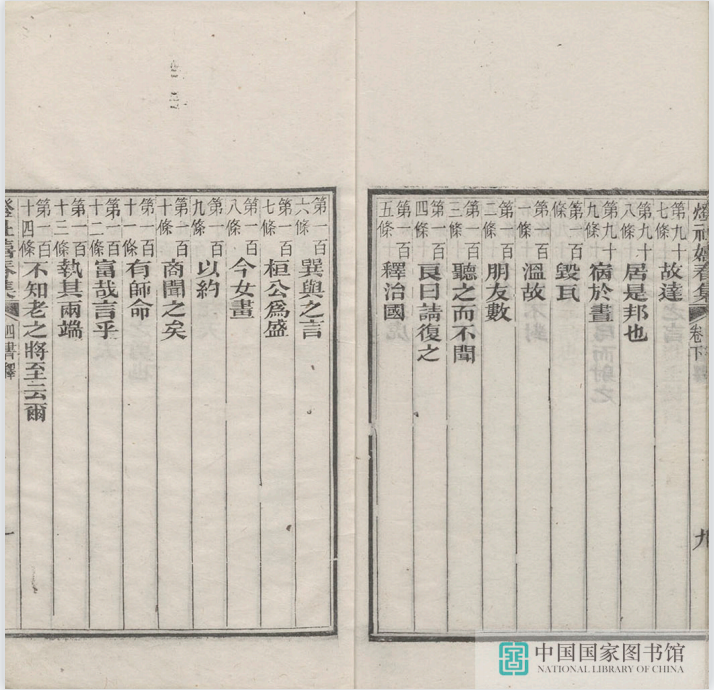 燈社嬉春集 卷下 九
第九十七條 故達
第九十八條 居是邦也
第九十九條 病於晝
第一百條 毀瓦
第一百一條 溫故
第一百二條 朋友數
第一百三條 聽之而不聞
第一百四條 良曰請復之
第一百五條 釋治國
第一百六條 巽與之言
第一百七條 桓公爲盛
第一百八條 今女畫
第一百九條 以約
第一百十條 商聞之矣
第一百十一條 有師命
第一百十二條 富哉言乎
第一百十三條 執其兩端
第一百十四條 不知老之將至云爾
燈社嬉春集 四書釋
中国国家图书馆
NATIONAL LIBRARY OF CHINA